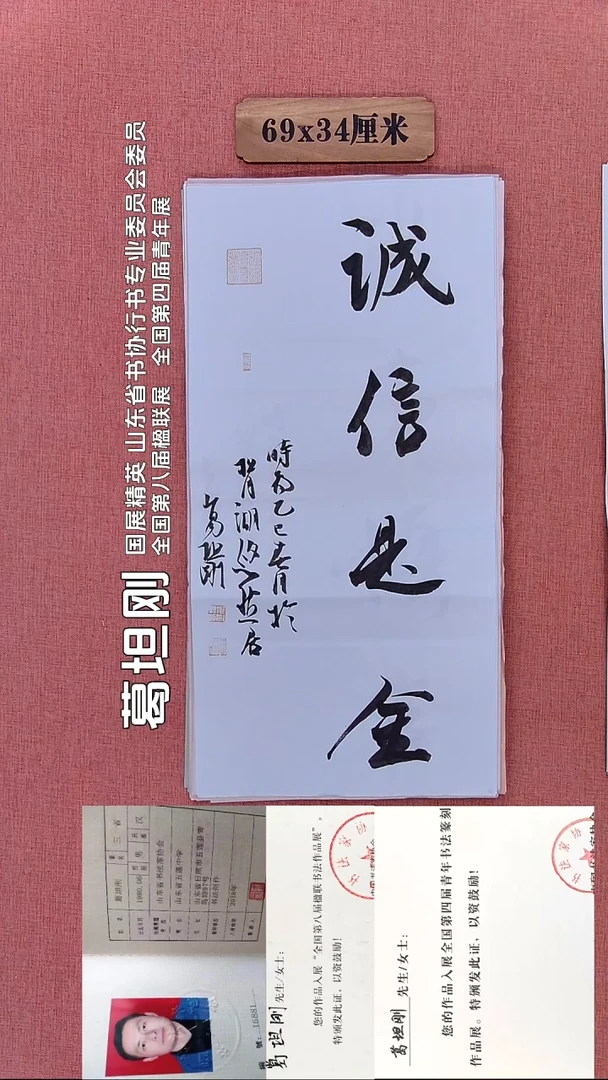 69x34厘米
誠
信
是
金
時为乙巳春月於
葛坦刚
葛坦刚
国展精英 山东省书协行书专业委员会委员
全国第八届楹联展 全国第四届青年展
山东省书法家协会
山东省五莲中学
山东省日照市五莲县青
书法创作
葛坦刚 先生/女士：
您的作品入展“全国第八届楹联书法作品展”。
特颁发此证，以资鼓励！
葛坦刚 先生/女士：
您的作品入展全国第四届青年书法篆刻
作品展。特颁发此证，以资鼓励！